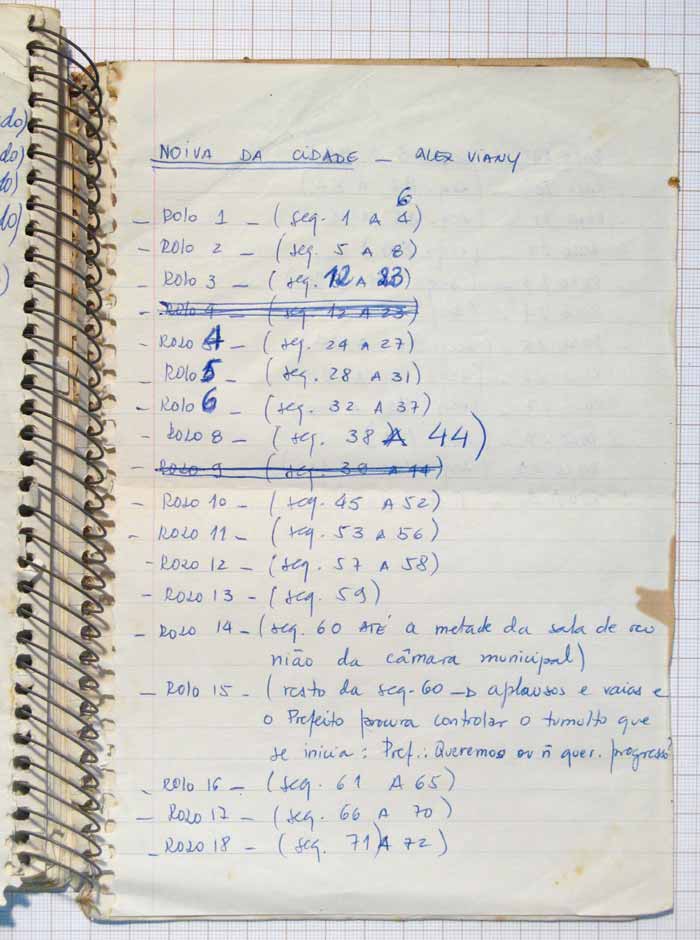 do)
do)
lo)
lo)
)
NOIVA DA CIDADE — ALEX VIANY
6
— ROLO 1 — (seq. 1 A 4)
— ROLO 2 — (seq. 5 A 8)
— ROLO 3 — (seq. 12 A 23)
— ROLO 4 — (seq. 12 A 23)
— ROLO 4 — (seq. 24 A 27)
— ROLO 5 — (seq. 28 A 31)
— ROLO 6 — (seq. 32 A 37)
— ROLO 8 — (seq. 38 A 44)
— ROLO 9 — (seq. 38 A 44)
— ROLO 10 — (seq. 45 A 52)
— ROLO 11 — (seq. 53 A 56)
— ROLO 12 — (seq. 57 A 58)
— ROLO 13 — (seq. 59)
— ROLO 14 — (seq. 60 ATÉ a metade da sala de reu
nião da câmara municipal)
— ROLO 15 — (resto da seq. 60 → aplausos e vaias e
o Prefeito procura controlar o tumulto que
se inicia: Pref.: Queremos ou ñ quer. progresso?
— ROLO 16 — (seq. 61 A 65)
— ROLO 17 — (seq. 66 A 70)
— ROLO 18 — (seq. 71 A 72)